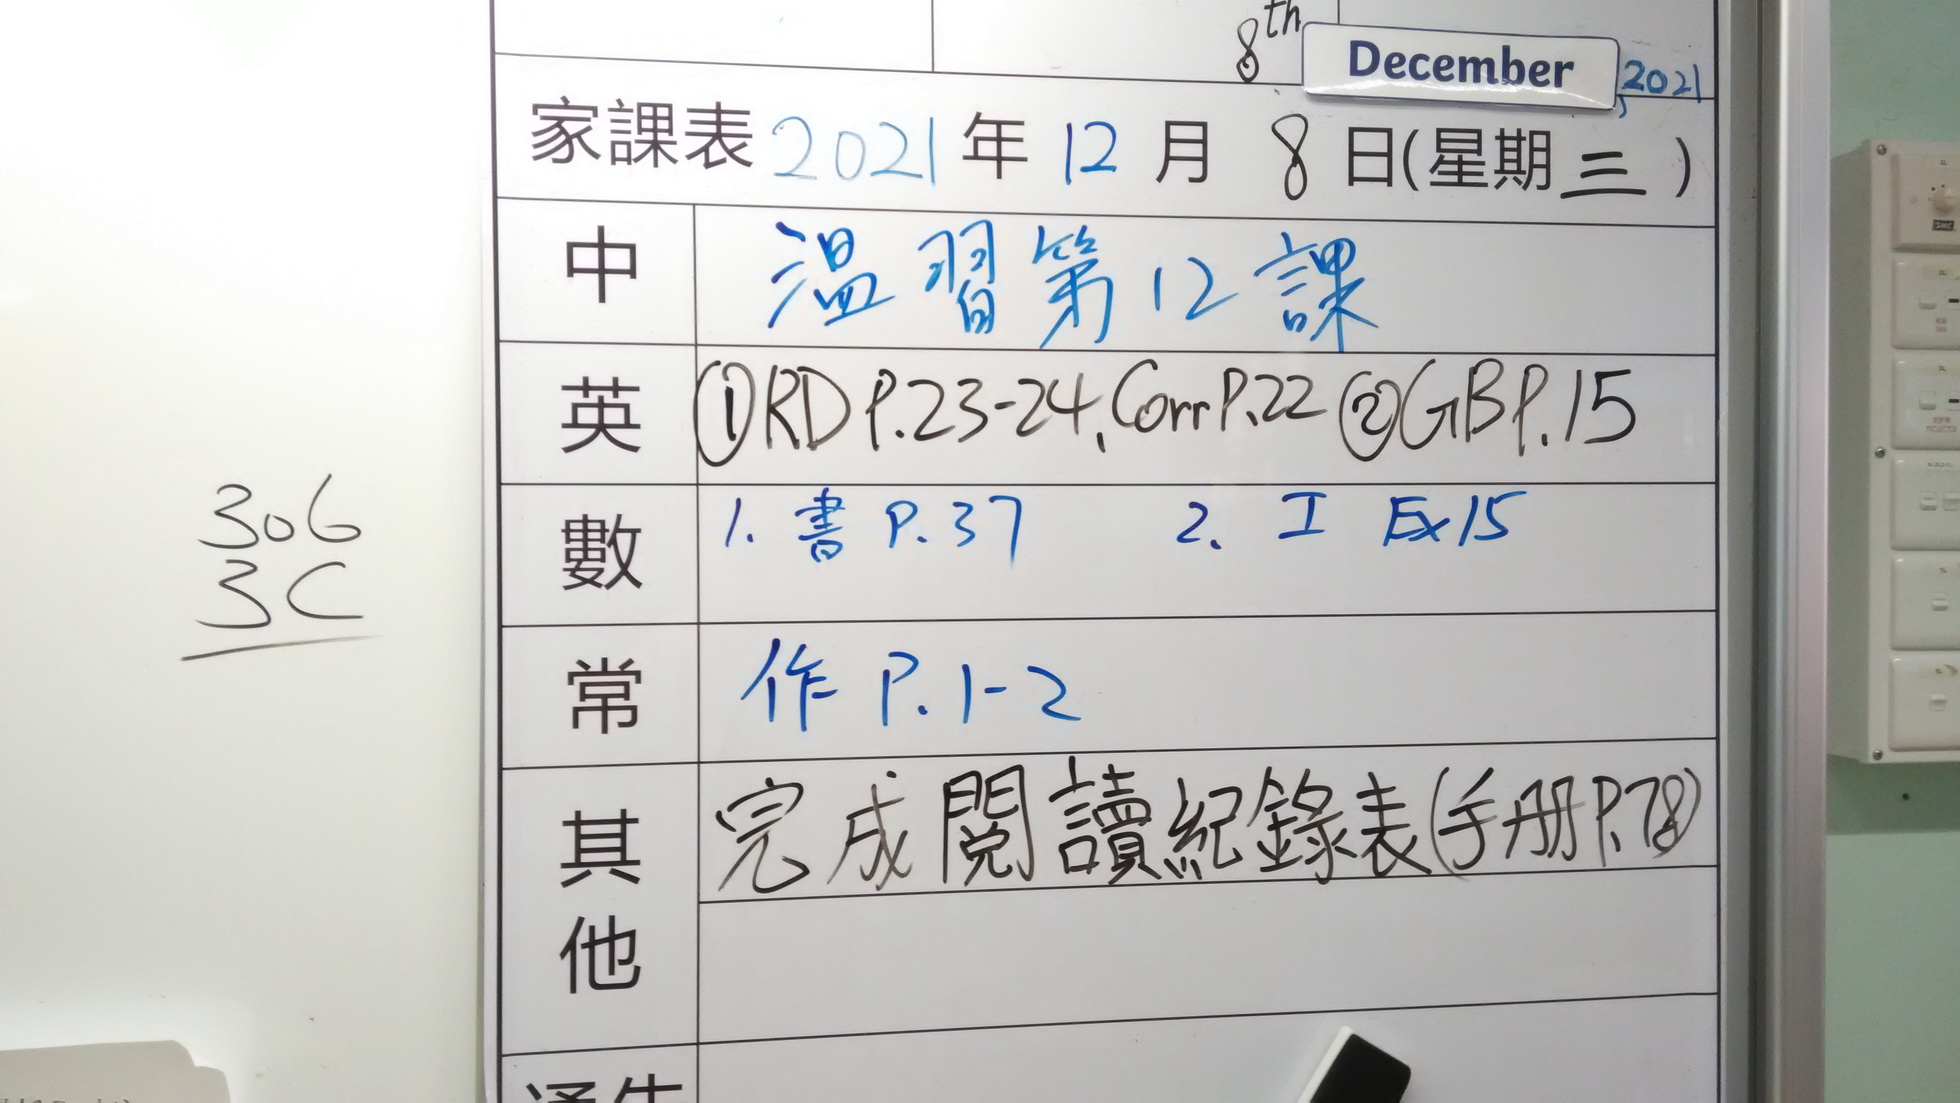 8th December, 2021
家課表 2021 年 12 月 8 日(星期三)
中 温習第12課
英 ①RD P.23-24, Corr P.22 ②GB P.15
數 1. 書 P.37 2. I Ex15
常 作 P.1-2
其他 完成閱讀紀錄表(手册P.78)
通告
306
3C